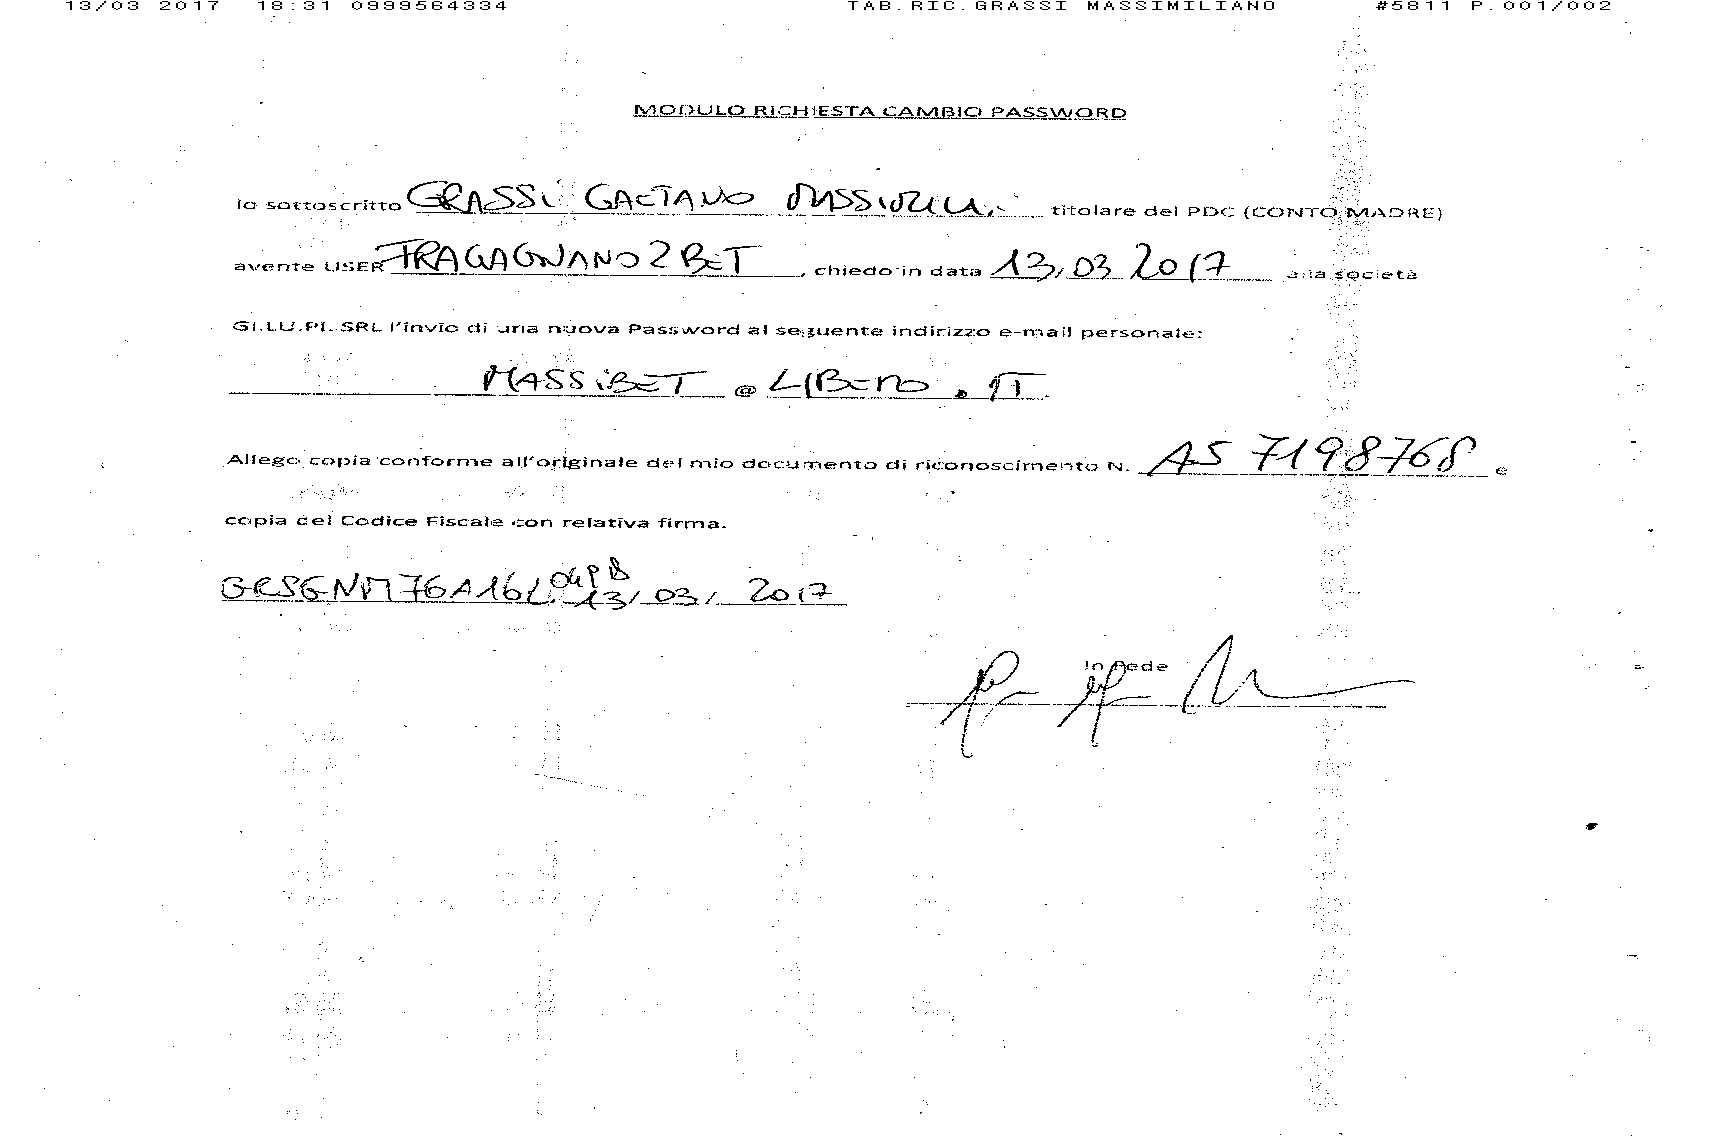 13/03 2017 18:31 0999564334 TAB.RIC.GRASSI MASSIMILIANO #5811 P.001/002
MODULO RICHIESTA CAMBIO PASSWORD
Io sottoscritto GRASSI GAETANO titolare del PDC (CONTO MADRE)
avente USER FRAGAGNANO2BET, chiedo in data 13/03 2017 alla società
GI.LU.PI. SRL l'invio di una nuova Password al seguente indirizzo e-mail personale:
MASSIBET @ LIBERO . IT
Allego copia conforme all'originale del mio documento di riconoscimento N. AS 7198768 e
copia del Codice Fiscale con relativa firma.
13/03/ 2017
In Fede